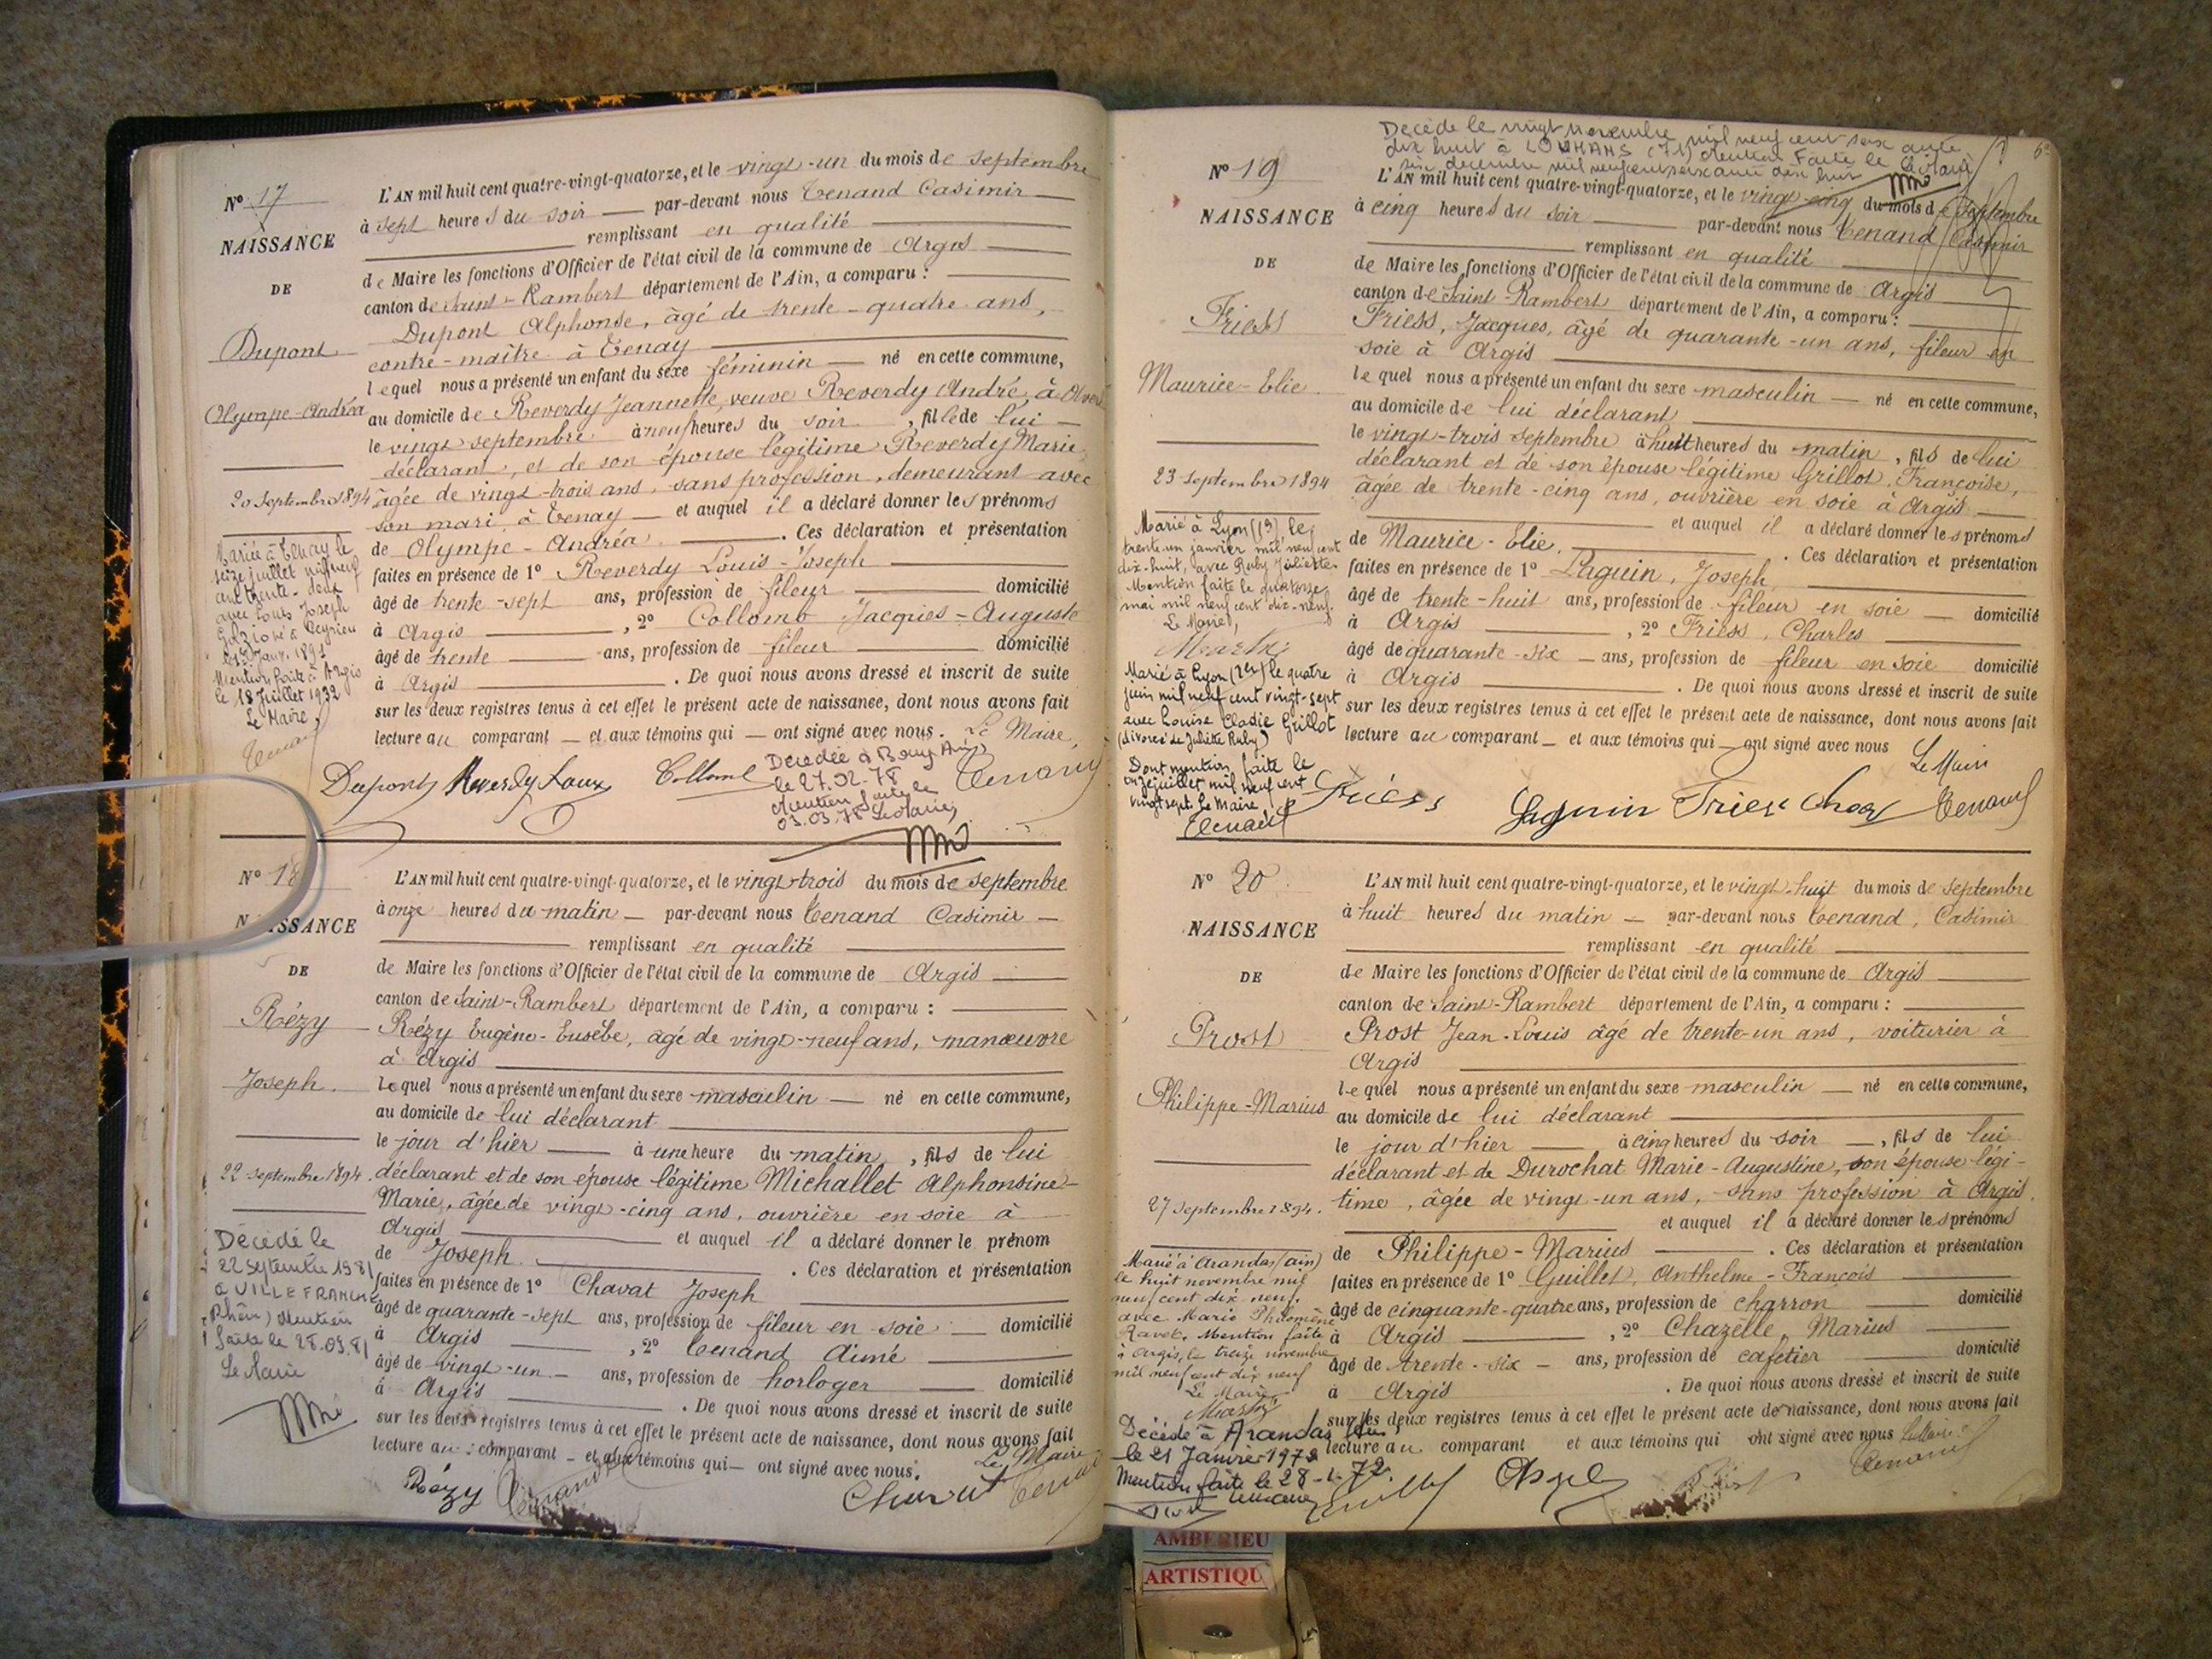 Nº 17
NAISSANCE
DE
Dupont
Olympe-Andréa
20 Septembre 1894
Mariée à Tenay le
seize juillet mil neuf
cent trente-deux
avec Louis Joseph
Mention faite à Argis
le 18 Juillet 1932
Le Maire,
L'AN mil huit cent quatre-vingt-quatorze, et le vingt-un du mois de septembre
à sept heures du soir par-devant nous Tenand Casimir
remplissant en qualité
de Maire les fonctions d'Officier de l'état civil de la commune de Argis
canton de Saint-Rambert département de l'Ain, a comparu :
Dupont Alphonse, âgé de trente-quatre ans,
contre-maître à Tenay
lequel nous a présenté un enfant du sexe féminin né en cette commune,
au domicile de Reverdy Jeannette, veuve Reverdy André, à
le vingt septembre à neuf heures du soir, fille de lui
déclarant, et de son épouse légitime Reverdy Marie,
âgée de vingt-trois ans, sans profession, demeurant avec
son mari, à Tenay et auquel il a déclaré donner les prénoms
de Olympe-Andréa. Ces déclaration et présentation
faites en présence de 1º Reverdy Louis-Joseph
âgé de trente-sept ans, profession de fileur domicilié
à Argis, 2º Collomb Jacques-Auguste
âgé de trente ans, profession de fileur domicilié
à Argis. De quoi nous avons dressé et inscrit de suite
sur les deux registres tenus à cet effet le présent acte de naissance, dont nous avons fait
lecture au comparant et aux témoins qui ont signé avec nous. Le Maire,
Décédée à Bourg Ain
le 27.02.78
Mention faite le
03.03.78 Le Maire,
Dupont Reverdy Louis Collomb Tenand
Nº 18
NAISSANCE
DE
Rézy
Joseph.
22 septembre 1894.
Décédé le
22 Septembre 1981
à VILLEFRANCHE
(Rhône) Mention
faite le 28.09.81
Le Maire
L'AN mil huit cent quatre-vingt-quatorze, et le vingt-trois du mois de septembre
à onze heures du matin par-devant nous Tenand Casimir
remplissant en qualité
de Maire les fonctions d'Officier de l'état civil de la commune de Argis
canton de Saint-Rambert département de l'Ain, a comparu :
Rézy Eugène-Eusèbe, âgé de vingt-neuf ans, manœuvre
à Argis
lequel nous a présenté un enfant du sexe masculin né en cette commune,
au domicile de lui déclarant
le jour d'hier à une heure du matin, fils de lui
déclarant et de son épouse légitime Michallet Alphonsine-
Marie, âgée de vingt-cinq ans, ouvrière en soie à
Argis et auquel il a déclaré donner le prénom
de Joseph. Ces déclaration et présentation
faites en présence de 1º Chavat Joseph
âgé de quarante-sept ans, profession de fileur en soie domicilié
à Argis, 2º Tenand Aimé
âgé de vingt-un ans, profession de horloger domicilié
à Argis. De quoi nous avons dressé et inscrit de suite
sur les deux registres tenus à cet effet le présent acte de naissance, dont nous avons fait
lecture au comparant et aux témoins qui ont signé avec nous. Le Maire
Rézy Tenand Chavat Tenand
Décédé le vingt novembre mil neuf cent soixante
dix huit à LOUHANS (71) Mention faite le
six décembre mil neuf cent soixante dix huit Le Maire
Nº 19
NAISSANCE
DE
Friess
Maurice-Elie.
23 Septembre 1894
Marié à Lyon (19) le
trente un janvier mil neuf cent
dix-huit, avec Ruby Juliette.
Mention faite le quatorze
mai mil neuf cent dix-neuf.
Le Maire,
Marié à Lyon (2er) le quatre
juin mil neuf cent vingt-sept
avec Louise Clasie Grillot
(divorcé de Juliette Ruby)
Dont mention faite le
onze juillet mil neuf cent
vingt sept. Le Maire
Tenand
L'AN mil huit cent quatre-vingt-quatorze, et le vingt-cinq du mois de septembre
à cinq heures du soir par-devant nous Tenand Casimir
remplissant en qualité
de Maire les fonctions d'Officier de l'état civil de la commune de Argis
canton de Saint-Rambert département de l'Ain, a comparu :
Friess, Jacques, âgé de quarante-un ans, fileur en
soie à Argis
lequel nous a présenté un enfant du sexe masculin né en cette commune,
au domicile de lui déclarant
le vingt-trois septembre à huit heures du matin, fils de lui
déclarant et de son épouse légitime Grillot, Françoise,
âgée de trente-cinq ans, ouvrière en soie à Argis
et auquel il a déclaré donner les prénoms
de Maurice-Elie. Ces déclaration et présentation
faites en présence de 1º Paquin, Joseph
âgé de trente-huit ans, profession de fileur en soie domicilié
à Argis, 2º Friess, Charles
âgé de quarante-six ans, profession de fileur en soie domicilié
à Argis. De quoi nous avons dressé et inscrit de suite
sur les deux registres tenus à cet effet le présent acte de naissance, dont nous avons fait
lecture au comparant et aux témoins qui ont signé avec nous Le Maire
Friess Paquin Friess Tenand
Nº 20
NAISSANCE
DE
Prost
Philippe-Marius
27 septembre 1894.
Marié à Arandas (Ain)
le huit novembre mil
neuf cent dix neuf,
avec Marie Philomène
Ravet. Mention faite
à Argis, le treize novembre
mil neuf cent dix neuf
Le Maire
Décédé à Arandas
le 21 Janvier 1972
Mention faite le 28-1-72.
L'AN mil huit cent quatre-vingt-quatorze, et le vingt-huit du mois de septembre
à huit heures du matin par-devant nous Tenand, Casimir
remplissant en qualité
de Maire les fonctions d'Officier de l'état civil de la commune de Argis
canton de Saint-Rambert département de l'Ain, a comparu :
Prost Jean-Louis âgé de trente-un ans, voiturier à
Argis
lequel nous a présenté un enfant du sexe masculin né en cette commune,
au domicile de lui déclarant
le jour d'hier à cinq heures du soir, fils de lui
déclarant et de Durochat Marie-Augustine, son épouse légi-
time, âgée de vingt-un ans, sans profession à Argis.
et auquel il a déclaré donner les prénoms
de Philippe-Marius. Ces déclaration et présentation
faites en présence de 1º Guillet, Anthelme-François
âgé de cinquante-quatre ans, profession de charron domicilié
à Argis, 2º Chazelle, Marius
âgé de trente-six ans, profession de cafetier domicilié
à Argis. De quoi nous avons dressé et inscrit de suite
sur les deux registres tenus à cet effet le présent acte de naissance, dont nous avons fait
lecture au comparant et aux témoins qui ont signé avec nous Le Maire
Tenand
AMBERIEU
ARTISTIQU